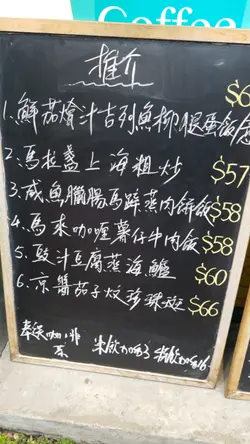 Coffee
推介
1.鮮茄燴汁吉列魚柳腿蛋飯 $6
2.馬拉盞上海粗炒 $57
3.咸魚臘腸馬蹄蒸肉餅飯 $58
4.馬來咖喱薯仔牛肉飯 $58
5.豉汁豆腐蒸海鱸 $60
6.京醬茄子炆珍珠斑 $66
奉送咖啡 茶